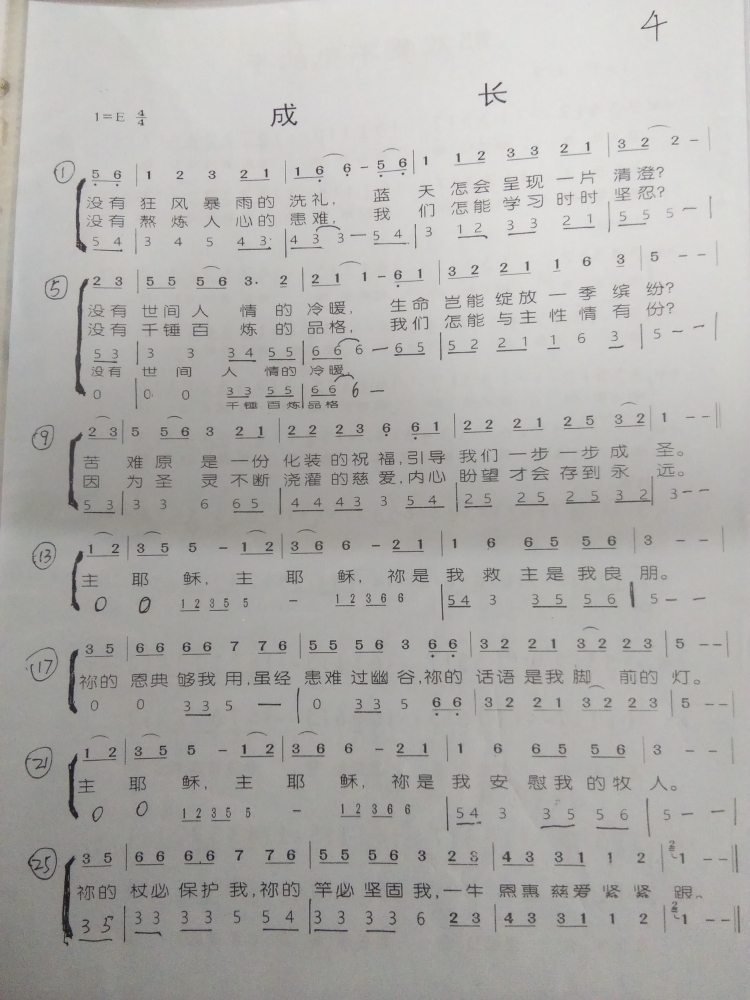 4
成 长
1=E 4/4
① 5 6 | 1 2 3 2 1 | 1 6 6 - 5 6 | 1 1 2 3 3 2 1 | 3 2 2 - |
没有 狂 风 暴 雨的 洗礼, 蓝 天 怎会 呈现 一片 清澄?
没有 熬 炼 人 心的 患难, 我 们 怎能 学习 时时 坚忍?
5 4 | 3 4 5 4 3 | 4 3 3 - 5 4 | 3 1 2 3 3 2 1 | 5 5 5 - |
⑤ 2 3 | 5 5 5 5 6 3· 2 | 2 1 1 - 6 1 | 3 2 2 1 1 6 3 | 5 - - |
没有 世间 人 情 的 冷暖, 生命 岂能 绽放 一 季 缤 纷?
没有 千锤 百 炼 的 品格, 我们 怎能 与主 性 情 有 份?
5 3 | 3 3 3 4 5 5 | 6 6 6 - 6 5 | 5 2 2 1 1 6 3 | 5 - - |
没有 世 间 人 情的 冷暖,
0 | 0 0 3 3 5 5 | 6 6 6 -
千锤 百炼 品格
⑨ 2 3 | 5 5 6 3 2 1 | 2 2 2 3 6 6 1 | 2 2 2 1 2 5 3 2 | 1 - - ||
苦 难 原 是 一份 化装 的祝 福,引导 我们 一步 一步 成 圣。
因 为 圣 灵 不断 浇灌 的慈 爱,内心 盼望 才会 存到 永 远。
5 3 | 3 3 6 6 5 | 4 4 4 3 3 5 4 | 2 5 2 5 2 5 3 2 | 3 - -
⑬ 1 2 | 3 5 5 - 1 2 | 3 6 6 - 2 1 | 1 6 6 5 5 6 | 3 - - |
主 耶 稣, 主 耶 稣, 祢是 我 救 主是 我良 朋。
0 0 1 2 3 5 5 - 1 2 3 6 6 | 5 4 3 3 5 5 6 | 5 - -
⑰ 3 5 | 6 6 6 6 7 7 6 | 5 5 5 6 3 6 6 | 3 2 2 1 3 2 2 3 | 5 - - |
祢的 恩典 够我 用,虽经 患难 过幽 谷,祢的 话语 是我 脚 前的 灯。
0 0 3 3 5 - | 0 3 3 5 6 6 | 3 2 2 1 3 2 2 3 | 5 - - |
㉑ 1 2 | 3 5 5 - 1 2 | 3 6 6 - 2 1 | 1 6 6 5 5 6 | 3 - -
主 耶 稣, 主 耶 稣, 祢是 我 安 慰我 的牧 人。
0 0 1 2 3 5 5 - 1 2 3 6 6 | 5 4 3 3 5 5 6 | 5 - -
㉕ 3 5 | 6 6 6 6 7 7 6 | 5 5 5 6 3 2 | 4 3 3 1 1 2 | 1 - - ||
祢的 杖必 保护 我,祢的 竿必 坚固 我,一 恩惠 慈爱 紧 紧 跟。
3 5 | 3 3 3 3 5 5 4 | 3 3 3 3 6 2 3 | 4 3 3 1 1 2 | 1 - - ||